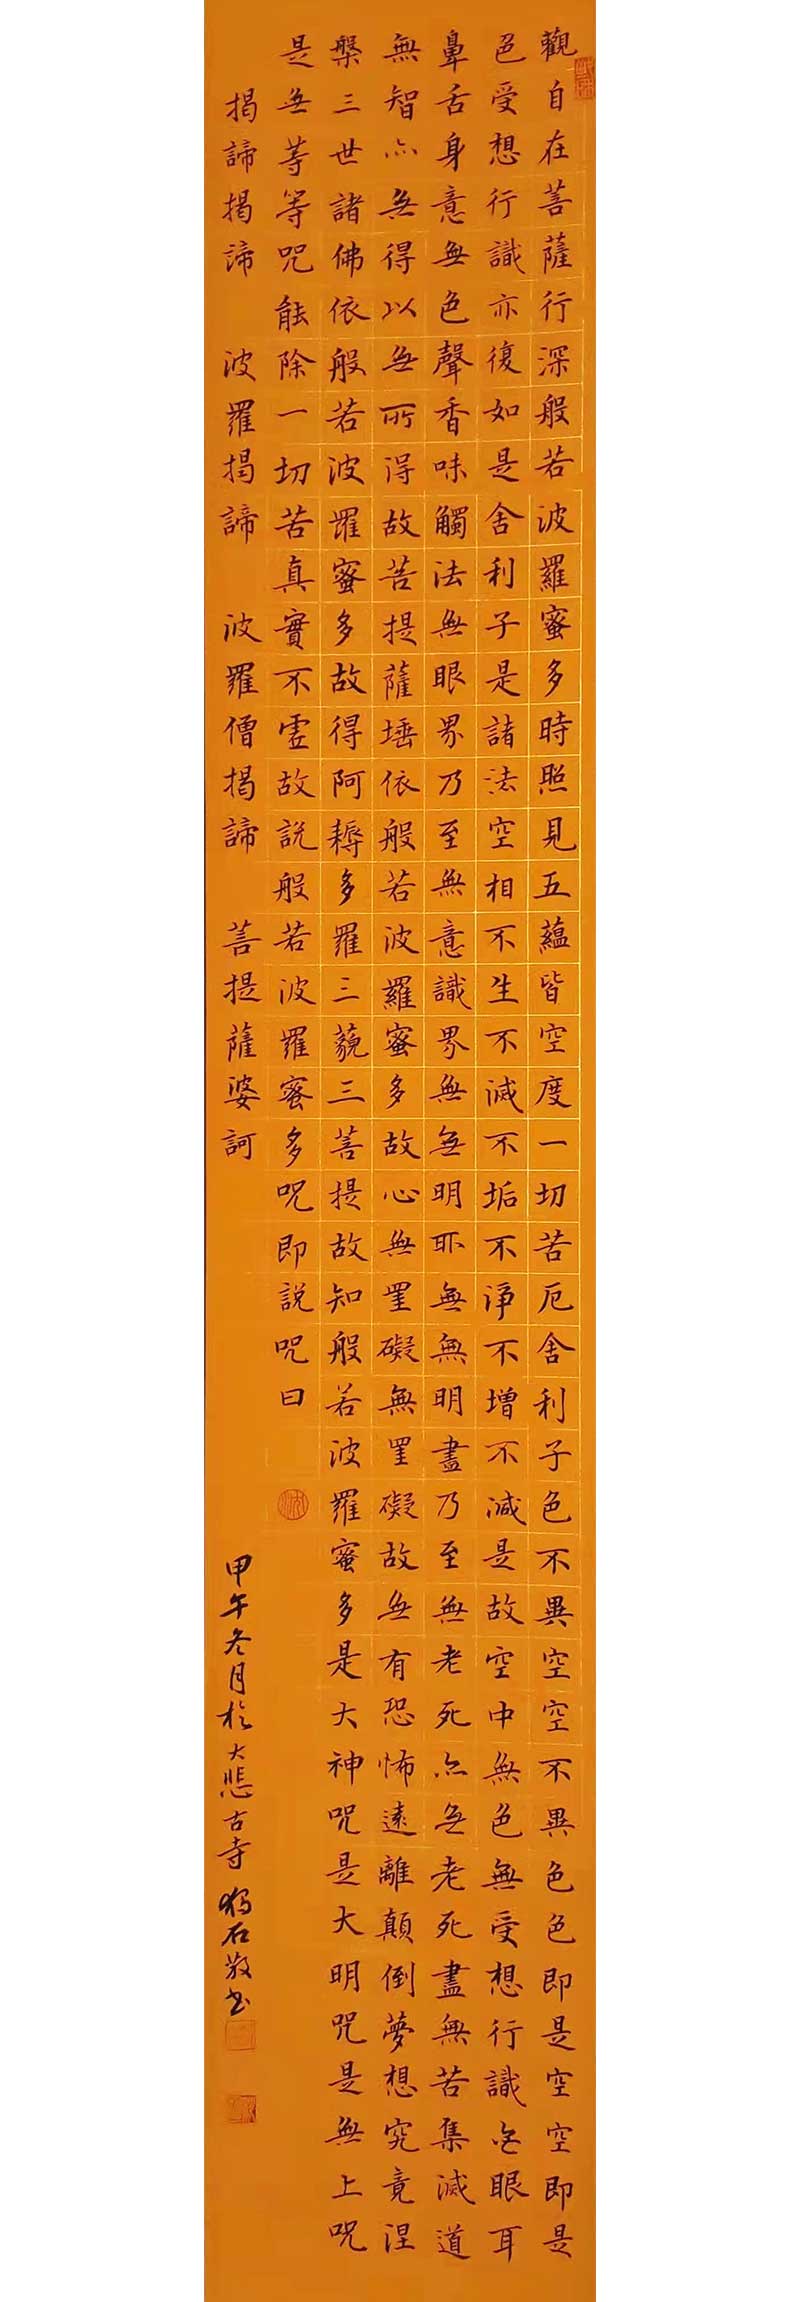 觀自在菩薩行深般若波羅蜜多時照見五蘊皆空度一切苦厄舍利子色不異空空不異色色即是空空即是
色受想行識亦復如是舍利子是諸法空相不生不滅不垢不淨不增不減是故空中無色無受想行識無眼耳
鼻舌身意無色聲香味觸法無眼界乃至無意識界無無明亦無無明盡乃至無老死亦無老死盡無苦集滅道
無智亦無得以無所得故菩提薩埵依般若波羅蜜多故心無罣礙無罣礙故無有恐怖遠離顛倒夢想究竟涅
槃三世諸佛依般若波羅蜜多故得阿耨多羅三藐三菩提故知般若波羅蜜多是大神咒是大明咒是無上咒
是無等等咒能除一切苦真實不虛故說般若波羅蜜多咒即說咒曰
揭諦揭諦 波羅揭諦 波羅僧揭諦 菩提薩婆訶
甲午冬月於大悲古寺 獨石敬書